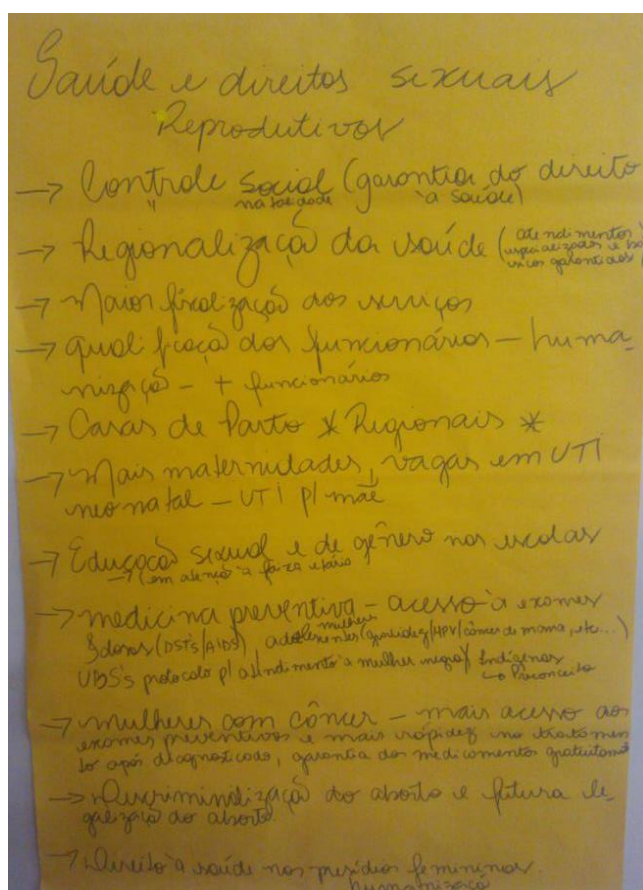 Saúde e direitos sexuais
Reprodutivos
→ Controle social (garantia do direito
" natalidade à saúde)
→ Regionalização da saúde (atendimentos
especializados e bá
sicos garantidos)
→ Maior fiscalização dos serviços
→ qualificação dos funcionários – huma-
nização – + funcionários
→ Casas de Parto * Regionais *
→ Mais maternidades, vagas em UTI
neonatal – UTI p/ mãe
→ Educação sexual e de gênero nas escolas
→ (em atenção à faixa etária)
→ medicina preventiva – acesso à exames
mulheres
Idosas (DST's/AIDS), adolescentes (gravidez/HPV/câncer de mama, etc...)
UBS's protocolo p/ atendimento à mulher negra / Indígenas
↳ Preconceito
→ mulheres com câncer – mais acesso aos
exames preventivos e mais rápidez no tratamen
to após diagnosticado, garantia dos medicamentos gratuitamente
→ Descriminilização do aborto e futura le-
galização do aborto
→ Direito à saúde nos presídios femininos.
humanização